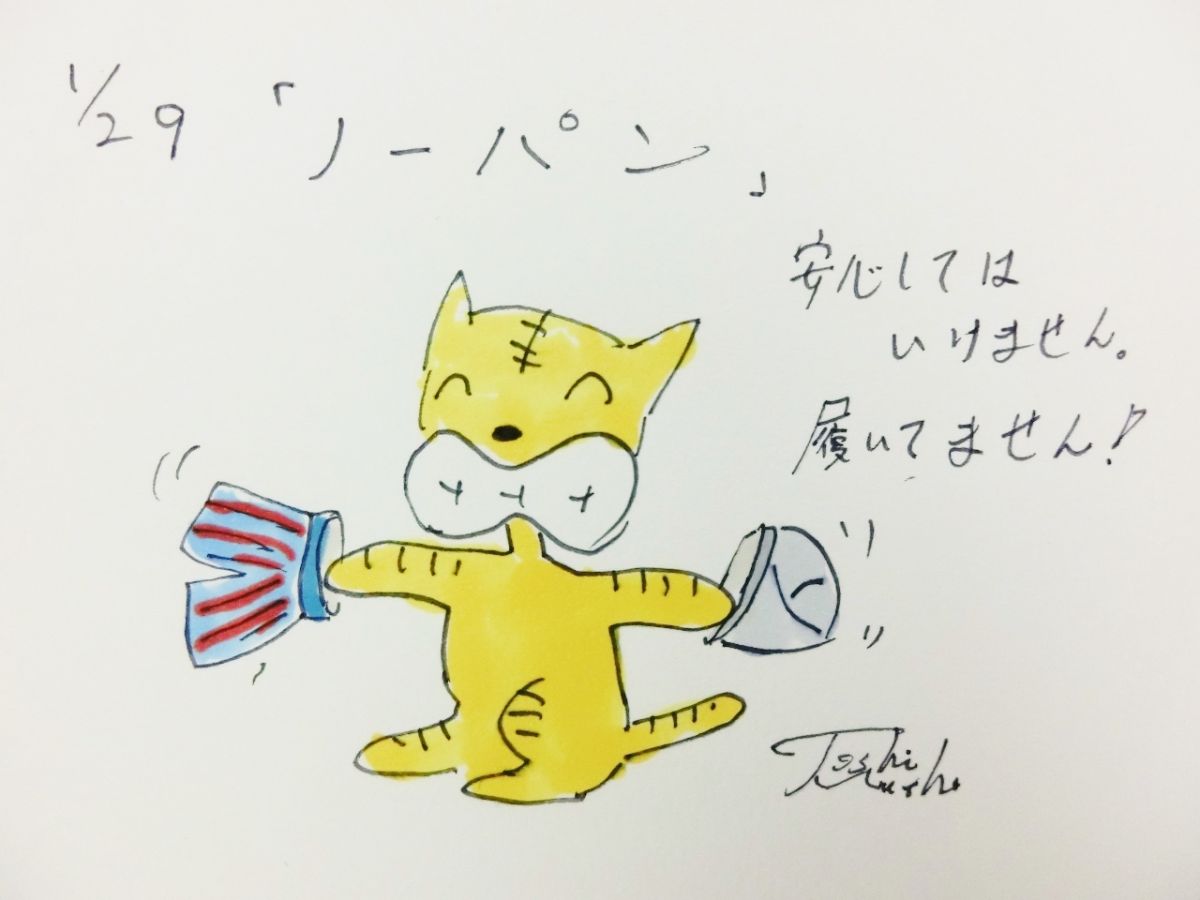 1/29「ノーパン」
安心しては
いけません。
履いてません!
Toshi